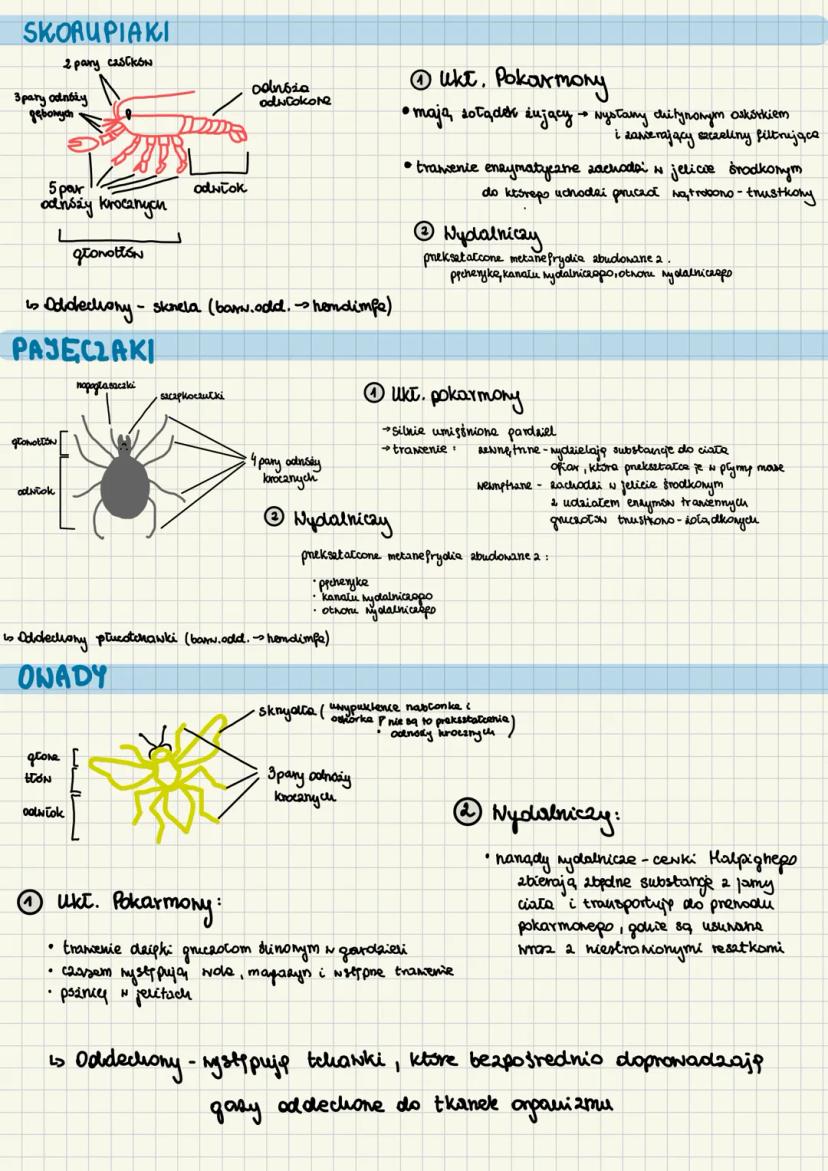 SKORUPIAKI
2 pary czułków
3 pary odnóży
gębowych
odnóża
odwłokowe
5 par
odnóży krocznych
odwłok
głowotłów
① Ukł. Pokarmowy
• mają żołądek żujący → wysłany chitynowym oskórkiem
i zawierający szczeliny filtrujące
• trawienie enzymatyczne zachodzi w jelicie środkowym
do którego uchodzi gruczoł wątrobowo-trzustkowy
② Wydalniczy
przekształcone metanefrydia zbudowane z.
pęcherzyka, kanału wydalniczego, otworu wydalniczego
↳ Oddechowy - skrzela (barw. odd. → hemolimfa)
PAJĘCZAKI
nogogłaszczki
szczękoczułki
głowotłów
odwłok
4 pary odnóży
krocznych
① Ukł. pokarmowy
→ silnie umięśniona gardziel
→ trawienie : zewnętrzne - wydzielają substancje do ciała
ofiar, które przekształca je w płynną masę
wewnętrzne - zachodzi w jelicie środkowym
z udziałem enzymów trawiennych
gruczołów trzustkowo-żołądkowych
② Wydalniczy
przekształcone metanefrydia zbudowane z :
· pęcherzyka
· kanału wydalniczego
· otworu wydalniczego
↳ Oddechowy płucotchawki (barw. odd. → hemolimfa)
OWADY
skrzydła ( uwypuklenie nabłonka i
oskórka, nie są to przekształcenia
odnóży krocznych )
głowa
tłów
odwłok
3 pary odnóży
krocznych
② Wydalniczy:
• narządy wydalnicze - cewki Malpighego
zbierają zbędne substancje z jamy
ciała i transportuje do przewodu
pokarmowego, gdzie są usuwane
wraz z niestrawionymi resztkami
① Ukł. Pokarmowy:
• trawienie dzięki gruczołom ślinowym w gardzieli
• czasem występują wole, magazyn i wstępne trawienie
• później w jelitach
↳ Oddechowy - występuję tchawki, które bezpośrednio doprowadzają
gazy oddechowe do tkanek organizmu